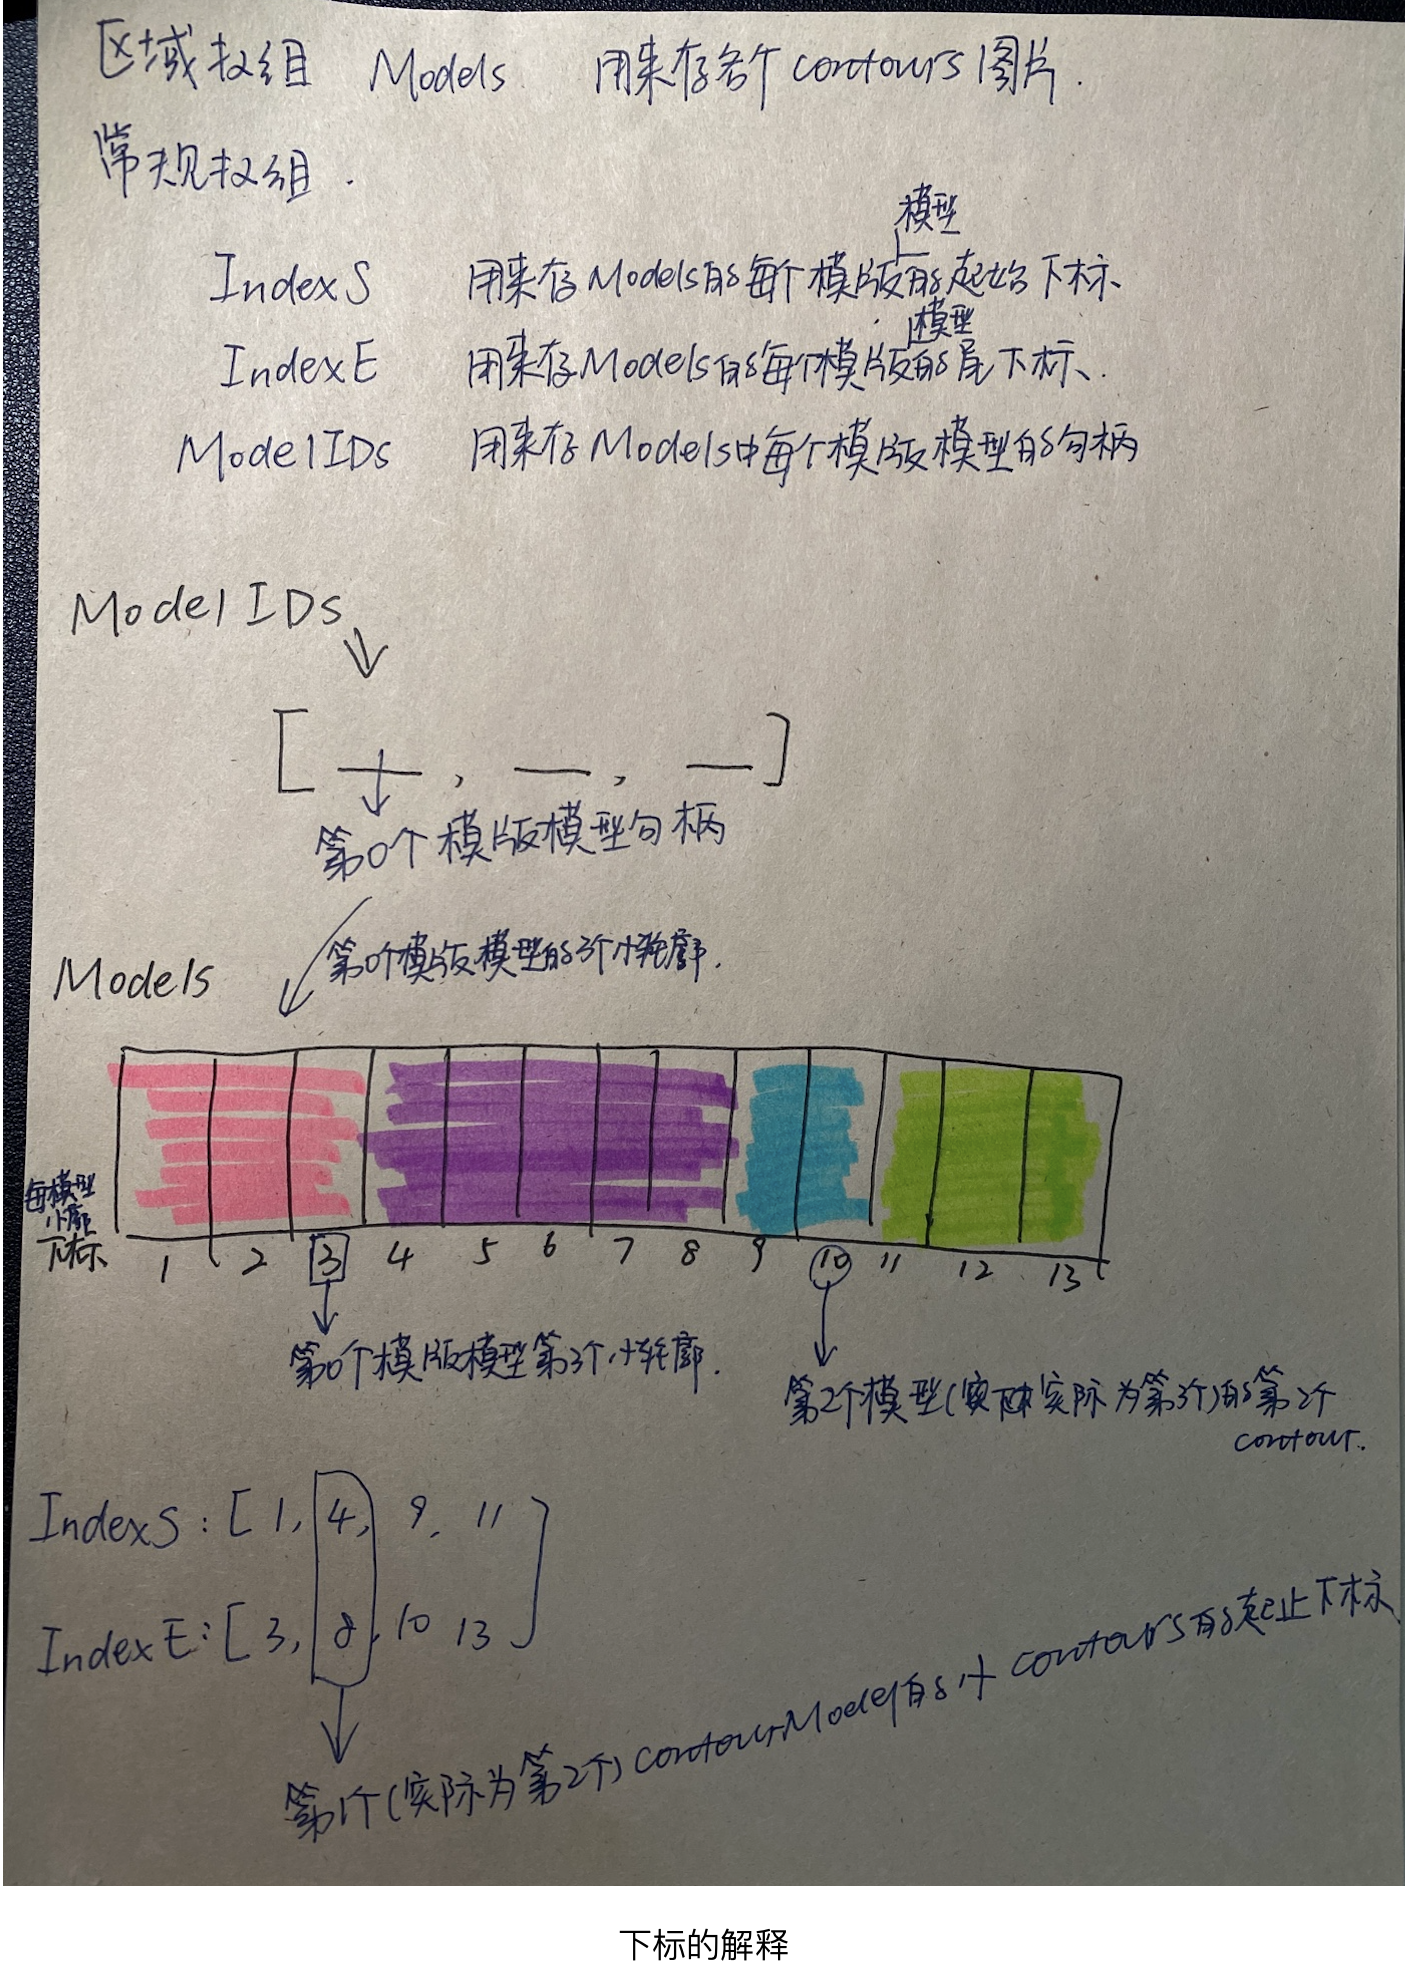 区域数组 Models 用来存各个 contours 图片.
常规数组.
模型
IndexS 用来存Models的每个模版的起始下标
模型
IndexE 用来存Models的每个模版的尾下标.
ModelIDs 用来存Models中每个模版模型的句柄
ModelIDs
[ , , ]
第0个模版模型句柄
第0个模版模型的3个小轮廓.
Models
每模型
小廓
下标
1 2 3 4 5 6 7 8 9 10 11 12 13
第0个模版模型第3个小轮廓.
第2个模型(实际为第3个)的第2个
contour.
IndexS: [ 1, 4, 9, 11 ]
IndexE: [ 3, 8, 10 13 ]
第1个(实际为第2个) contourModel的小contours的起止下标
下标的解释